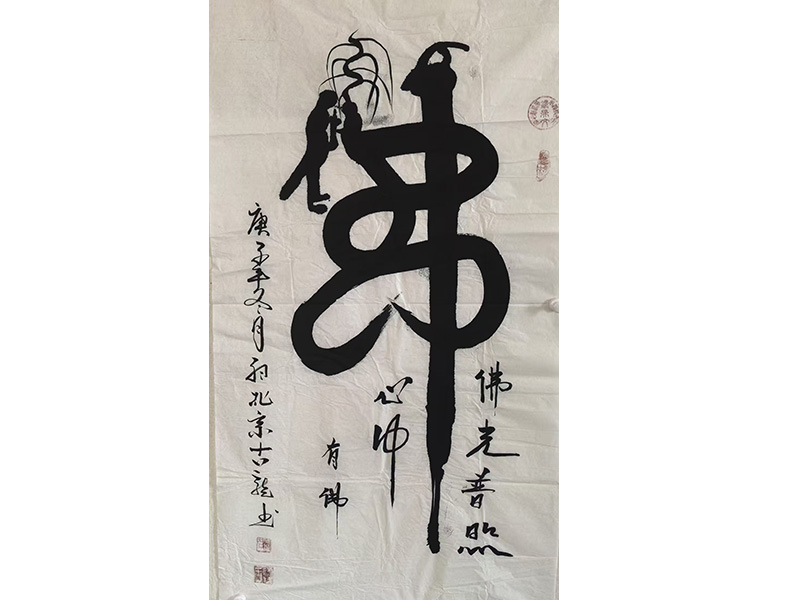 佛
佛光普照
心中
有佛
庚子年冬月京古龍书